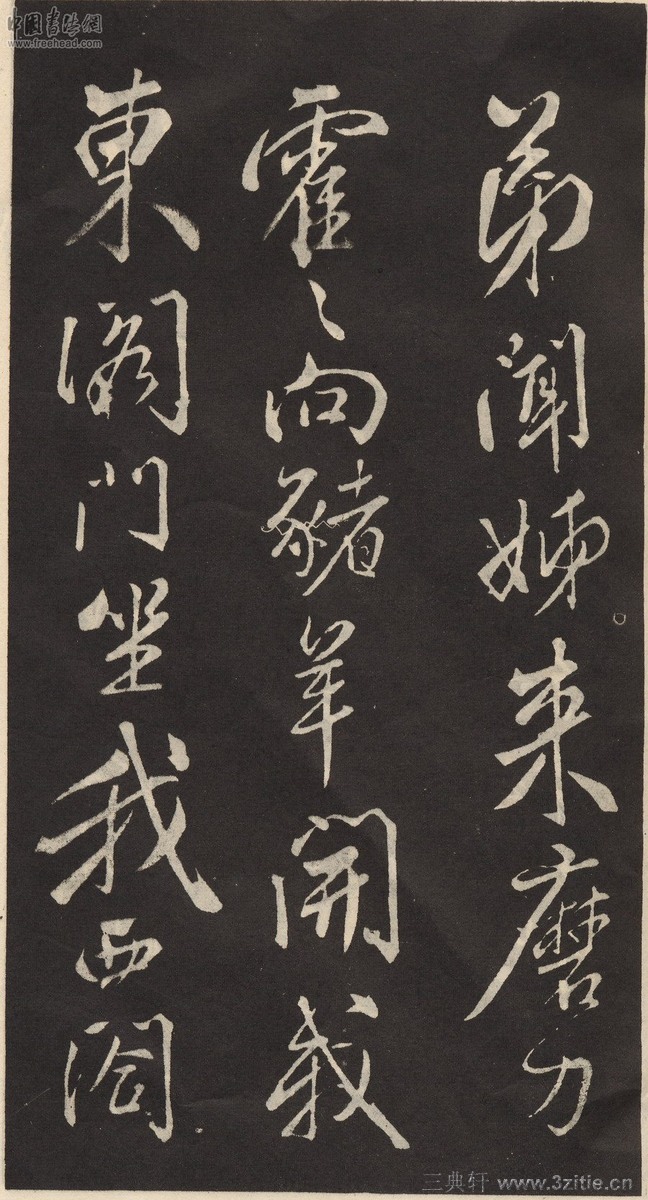 弟聞姊来磨刀
霍〻向豬羊開我
東閣門坐我西閤
中國書法網
www.freehead.com
三典轩 www.3zitie.cn